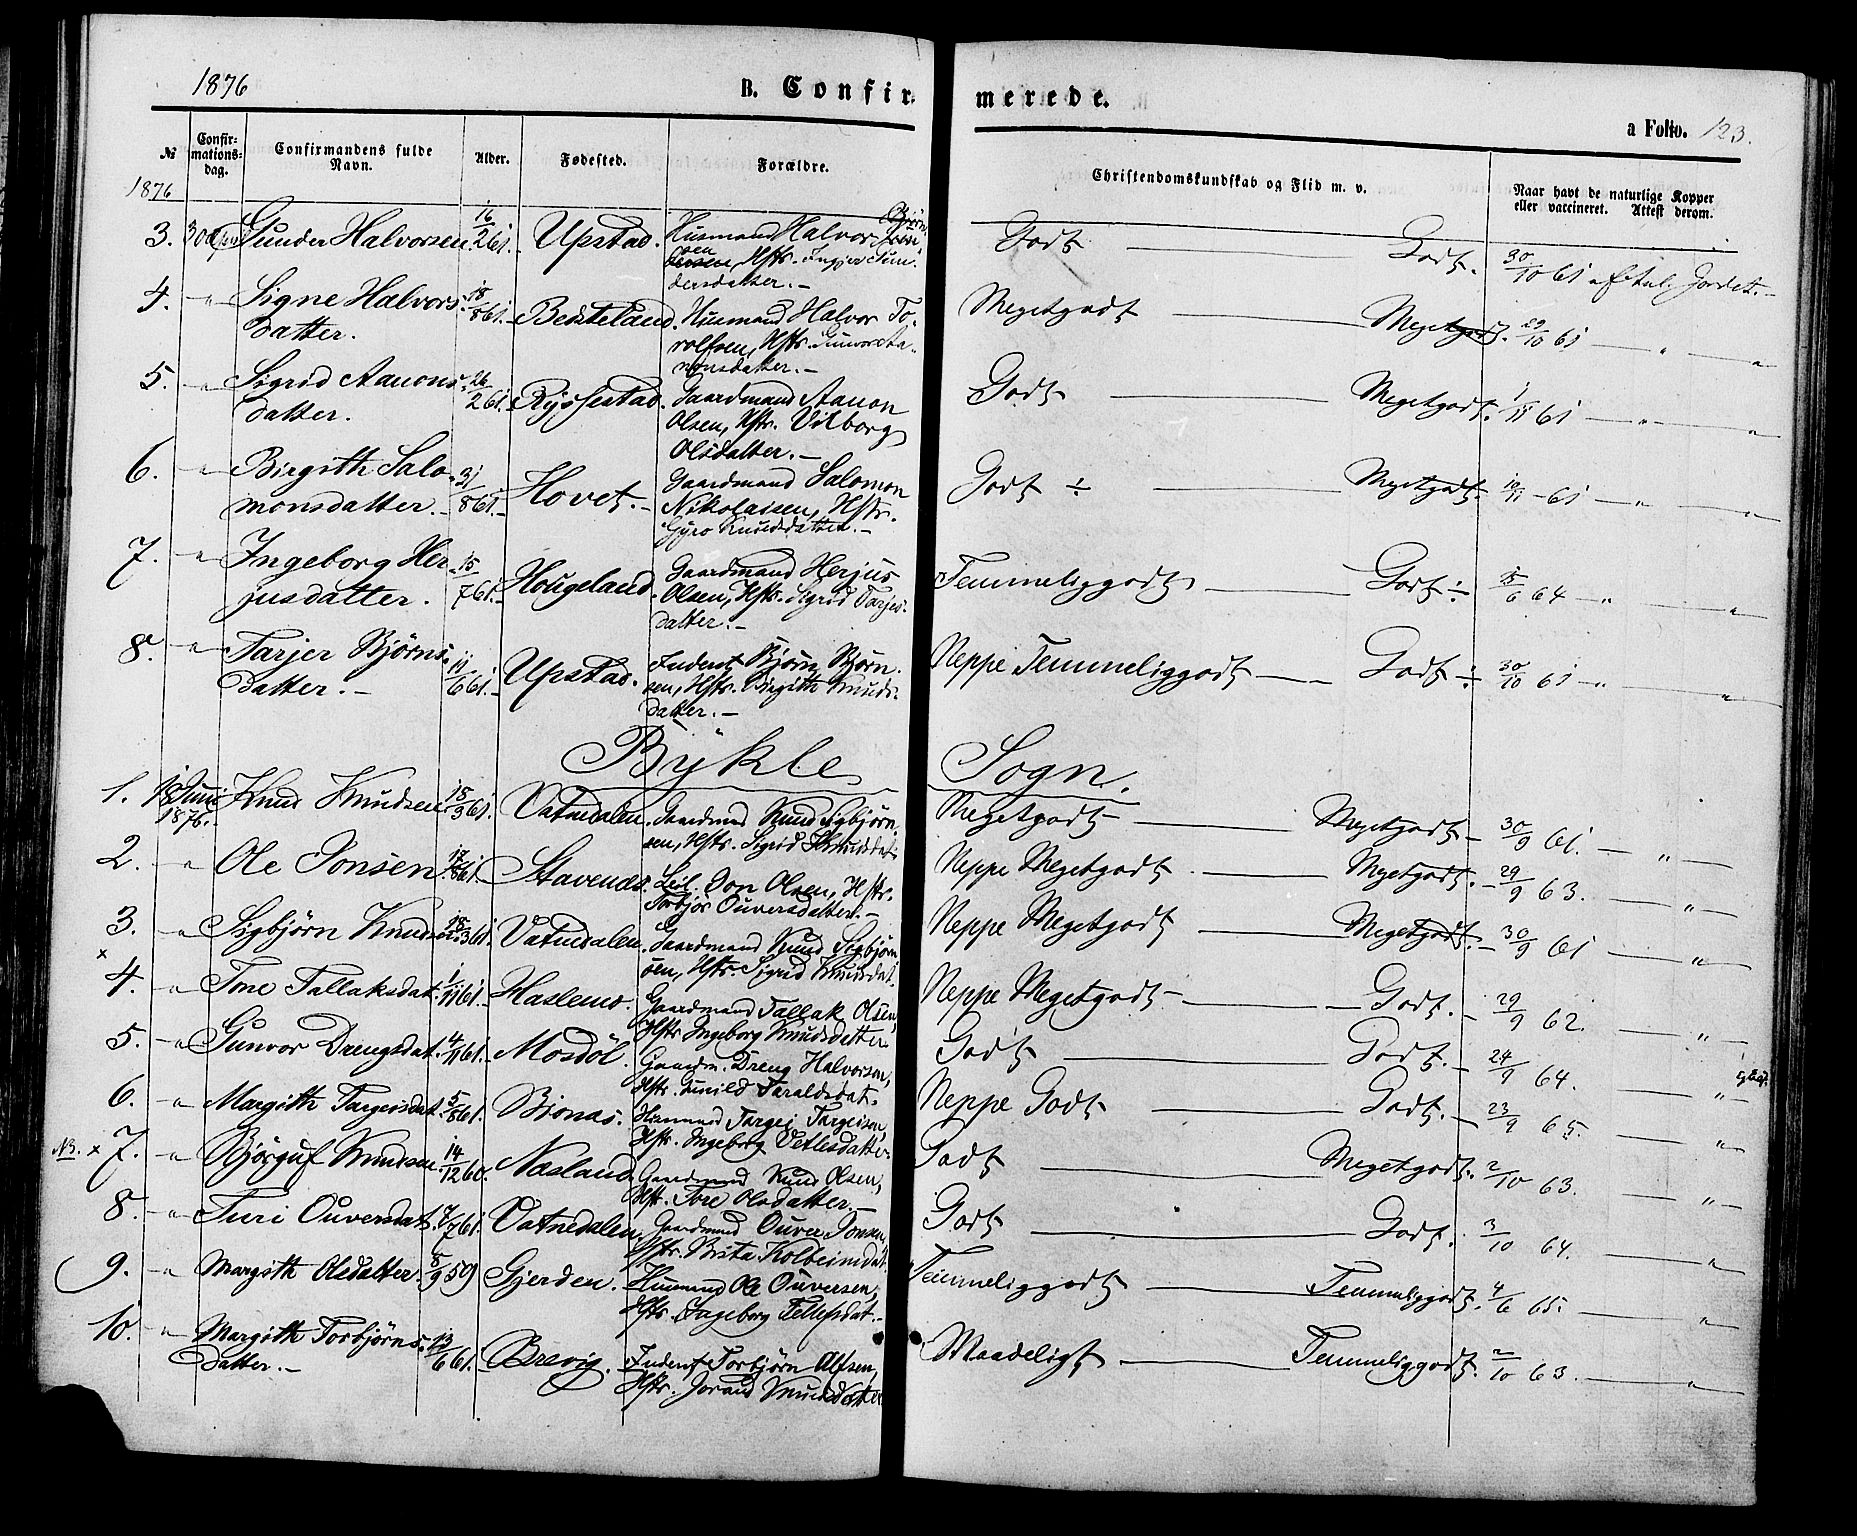 1876
B. Confirmerede.
a Folio. 123.
№ Confirmationsdag. Confirmandens fulde Navn. Alder. Fødested. Forældre. Christendomskundskab og Flid m. v. Naar havt de naturlige Kopper eller vaccineret. Attest derom.
1876
3. Gunder Halvorsen 16/2 61. Upstad. Husmand Halvor Hftr. Gundersdatter. Godt Godt. 30/10 61 af
4. " Signe Halvorsdatter. 18/8 61. Besteland. Husmand Halvor Torolfsen, Hftr. Gunvor Aanonsdatter. Megetgodt Megetgodt. 29/10 61 " "
5. " Sigrid Aanonsdatter. 26/2 61. Ryssestad. Gaardmand Aanon Olsen, Hftr. Vilborg Olsdatter. Godt Megetgodt. 1/11 61 " "
6. " Birgith Salomonsdatter. 31/8 61. Hovet. Gaardmand Salomon Nikolaisen, Hftr. Gyro Knudsdatter. Godt ÷ Megetgodt. 61 " "
7. " Ingeborg Herjusdatter. 15/7 61. Hougeland. Gaardmand Herjus Olsen, Hftr. Sigrid Tarjeidatter. Temmeliggodt Godt ÷ 64 " "
8. " Tarjer Bjørnsdatter. 11/6 61. Upstad. Inderst Bjørn Bjørnsen, Hftr. Birgith Knudsdatter. Neppe Temmeliggodt Godt ÷ 30/10 61 " "
Bykle Sogn.
1. 18 Juni 1876. Knud Knudsen 61. Vatnedalen. Gaardmd Knud Sigbjørnsen, Hftr. Sigrid Knudsdat. Megetgodt Megetgodt 30/9 61. "
2. " Ole Jonsen 61. Stavenes. Leil. Jon Olsen, Hftr. Torbjør Ouversdatter. Neppe Megetgodt Megetgodt. 29/9 63. "
3. " Sigbjørn Knudsen 61. Vatnedalen. Gaardmand Knud Sigbjørnsen, Hftr. Sigrid Knudsdat. Neppe Megetgodt Megetgodt. 30/9 61 "
x
4. " Tone Tallaksdat. 1/11 61. Haslemo. Gaardmand Tallak Olsen, Hftr Ingeborg Knudsdatter Neppe Megetgodt Godt. 29/9 62. "
5. " Gunvor Drengsdat. 4/11 61. Mosdöl. Gaardm. Dreng Halvorsen, Hftr. Gunild Taraldsdat. Godt Godt. 24/9 64. "
6. " Margith Targeisdat. 5/8 61. Bjonas. Targei Targeisen, Hftr. Ingeborg Vetlesdatter Neppe Godt Godt. 23/9 65. "
NB. x 7. " Bjørguf Knudsen 14/12 60. Næsland. Gaardmand Knud Olsen, Hftr. Tore Olsdatter. Godt Megetgodt. 2/10 63. "
8. " Turi Ouversdat. 7/7 61. Vatnedalen. Gaardmand Ouver Jonsen, Hftr. Brita Kolbeinsdat. Godt Godt. 3/10 64. "
9. " Margith Olsdatter. 8/9 59 Gjerden. Husmand Ole Ouversen, Hftr. Ingeborg Temmeliggodt Temmeliggodt. 4/6 65. "
10. " Margith Torbjørnsdatter. 13/6 61. Breivig. Inderst Torbjørn Alfsen, Hftr. Joraand Knudsdatter Maadeligt Temmeliggodt. 2/10 63. "